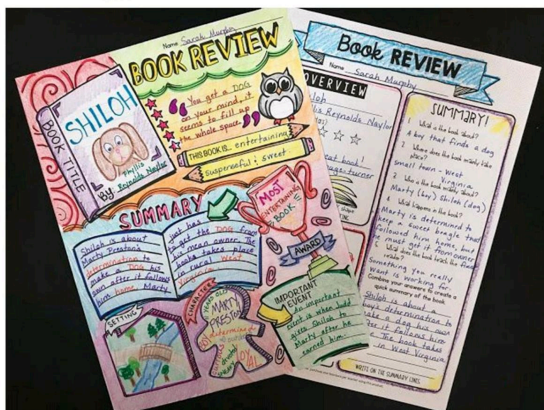 Name Sarah Murphy
BOOK REVIEW
BOOK TITLE
SHILOH
By: Phyllis
Reynolds Naylor
"You get a DOG
on your mind, it
seems to fill up
the whole space"
THIS BOOK IS... entertaining
suspenseful & sweet
SUMMARY
Shiloh is about
Marty Preston's
determination to
make a DOG his
own after it follows
him home. Marty
just has
to get the DOG from
his mean owner. The
book takes place
in rural West
Virginia.
MOST
ENTERTAINING
BOOK
AWARD
SETTING
CHARACTERS
MARTY
PRESTON
determined
LOYAL
IMPORTANT
EVENT
An important
event is when Judd
gives Shiloh to
Marty after he
earned him
Book REVIEW
Name Sarah Murphy
OVERVIEW
Shiloh
Reynolds Naylor
great book!
page turner
SUMMARY!
What is the book about?
A boy that finds a dog
Where does the book mostly take
place?
Small town - West
Virginia
Who is the book mostly about?
Marty (boy) Shiloh (dog)
What happens in the book?
Marty is determined to
keep a sweet beagle that
followed him home, but
must get it from owner
Something you really
want is working for.
Combine your answers to create a
summary of the book
Shiloh is about a
boy's determination to
make a dog his own
after it follows him
home. The book takes
in West Virginia
WRITE ON THE SUMMARY LINES